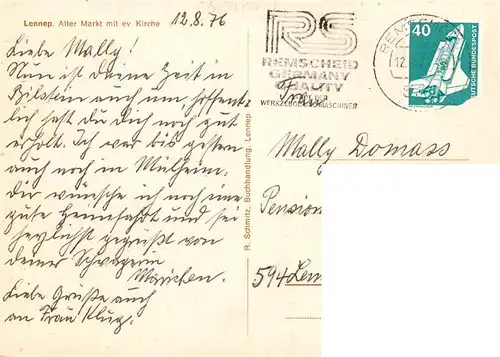 Lennep. Alter Markt mit ev Kirche
12.8.76
Liebe Mally!
Nun ist Deine Zeit in
Bilstein auch um, hoffent-
lich hast du Dich noch gut
erholt. Ich war bis gestern
auch noch in Mülheim.
Dir wünsche ich noch eine
gute Heimfahrt und sei
herzlichst gegrüßt von
deiner Schwägerin
Mariechen.
Liebe Grüße auch
an Frau Klug.
R. Schmitz, Buchhandlung, Lennep
RS
REMSCHEID
GERMANY
QUALITY
WERKZEUGE MASCHINEN
REMSCHEID
12.
40
DEUTSCHE BUNDESPOST
Mally Domass
Pension
594 Len